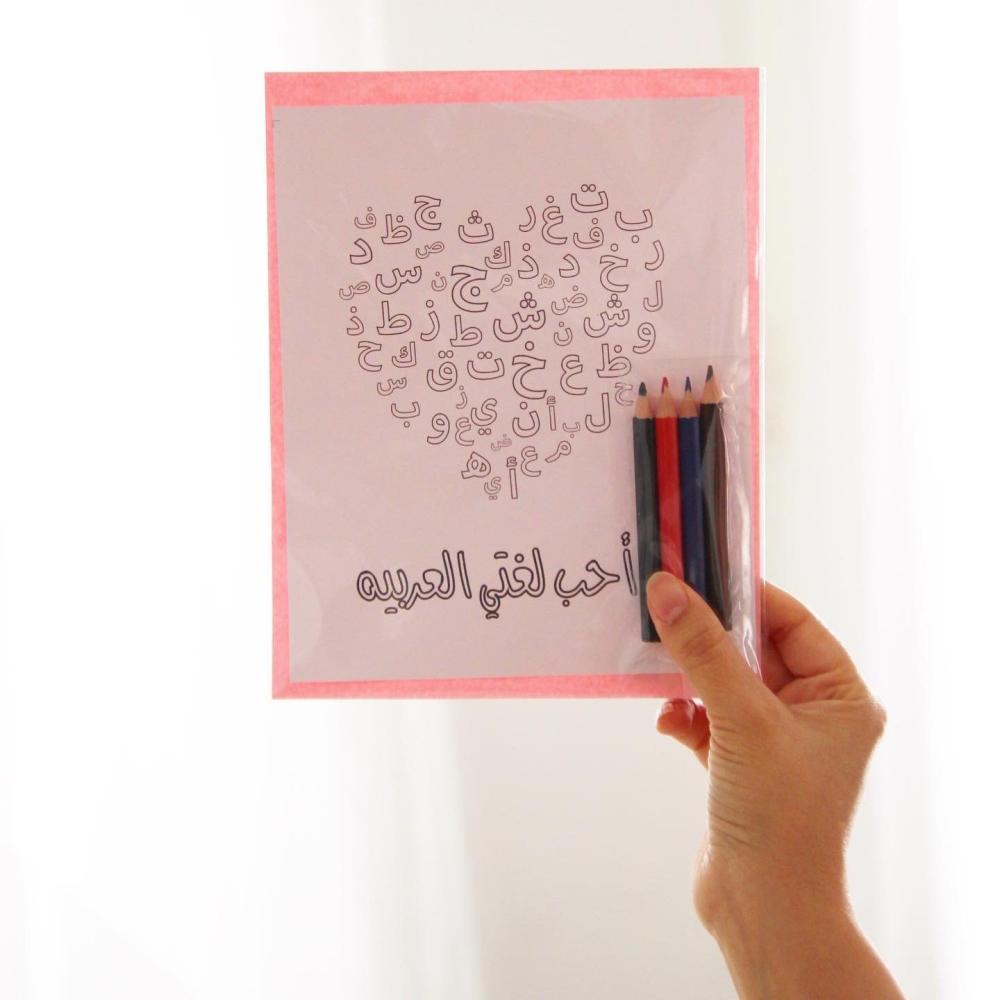 ف ظ ج ث ر غ ت ب
د س ص ك ذ د ف خ ر
ص ن ج م ه ض ل
ذ ط ز ط ش ن ش و
ح ك ق ت خ ع ظ
س ز ح
ب و ع ي ن أ ب ل
ض ه ي أ ع م
أحب لغتي العربيه